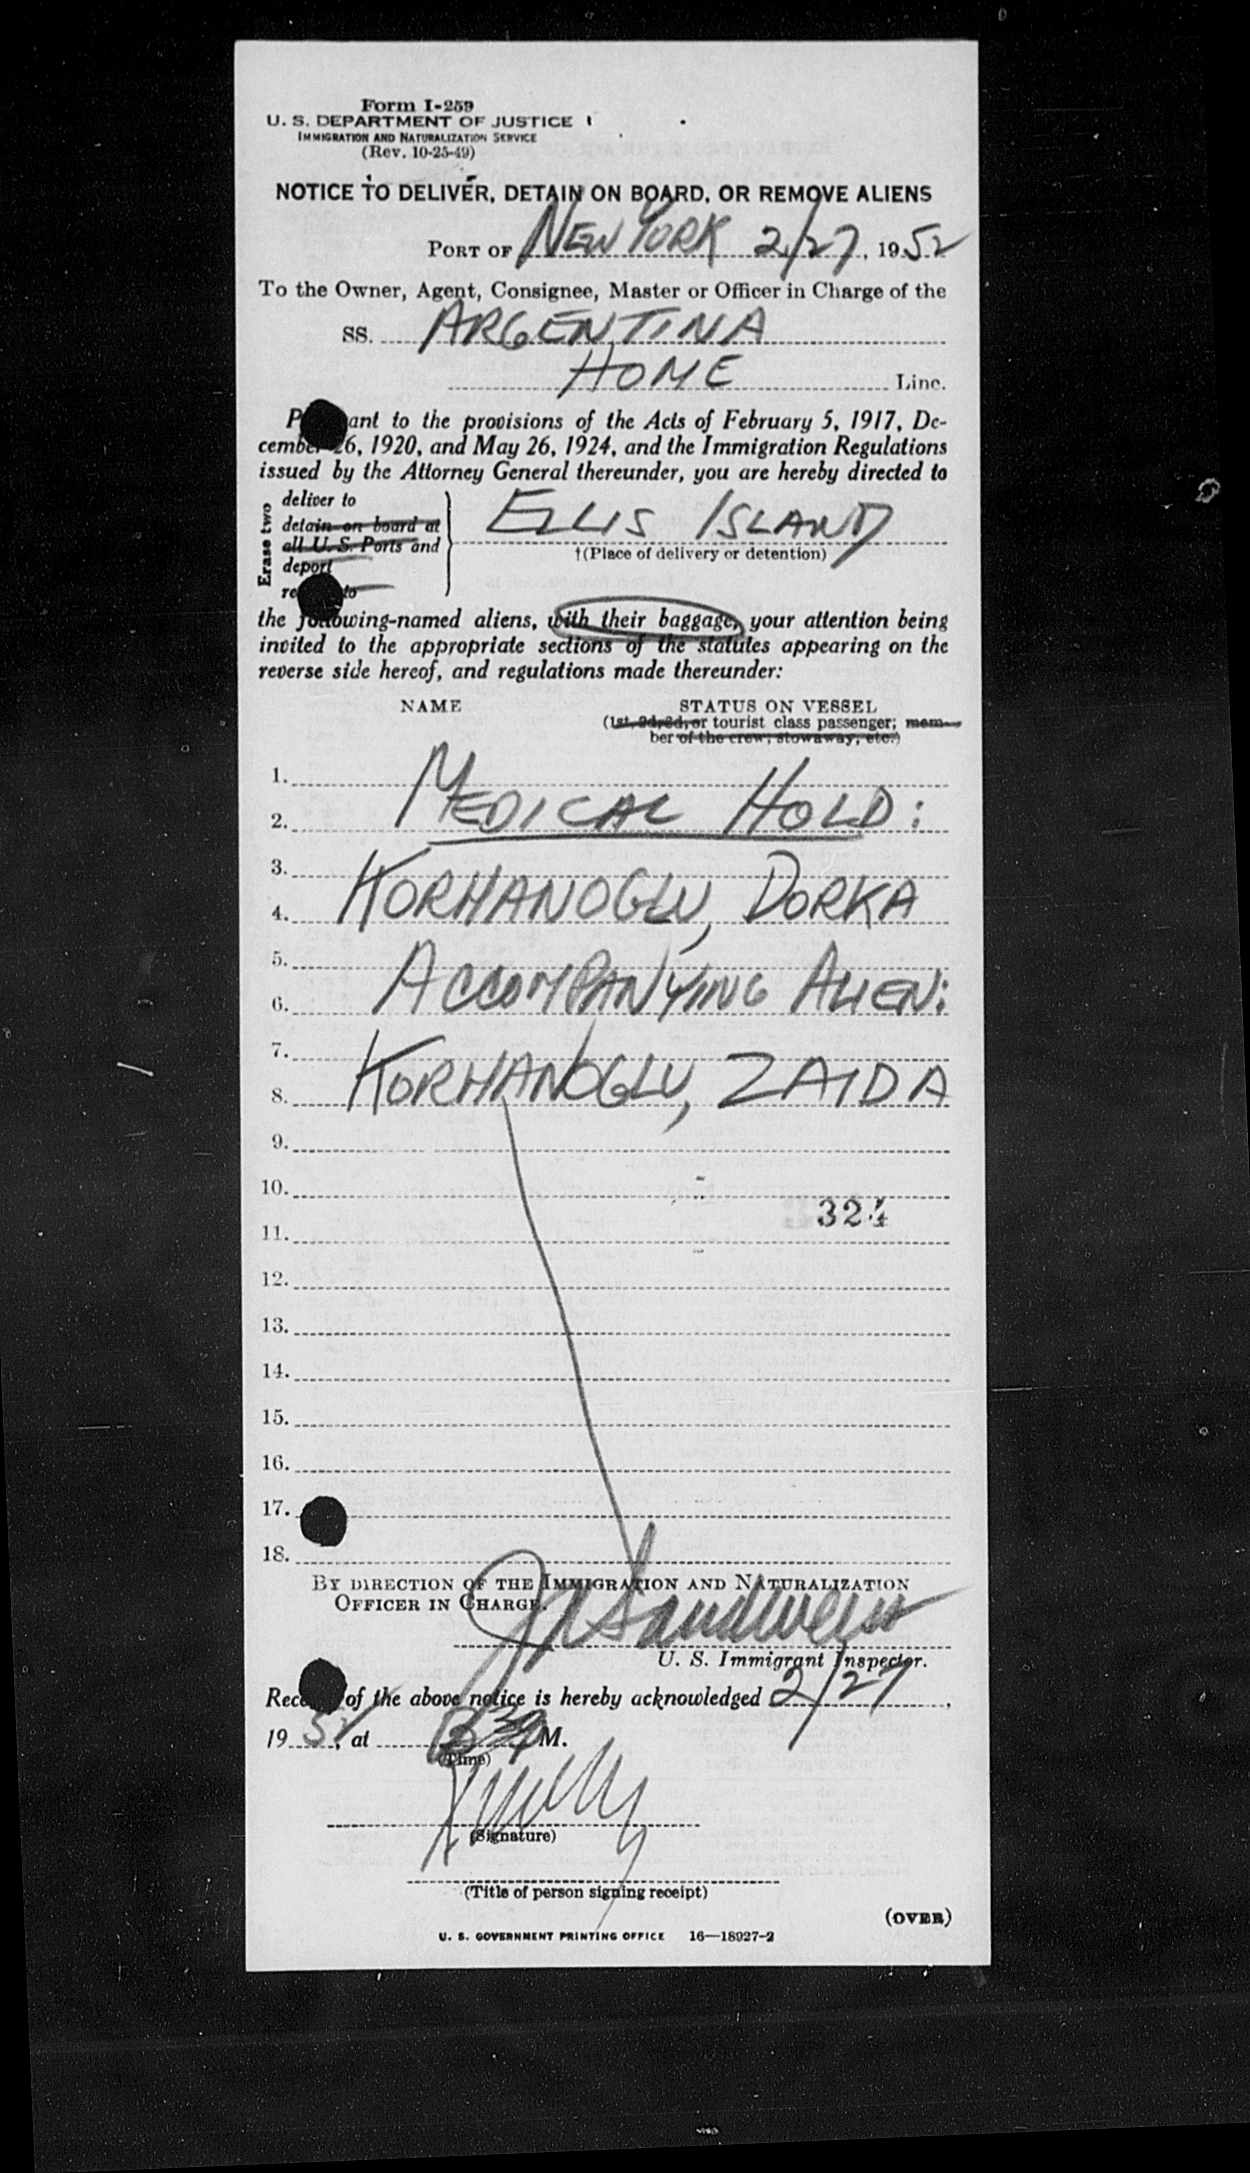 Form I-259
U. S. DEPARTMENT OF JUSTICE
IMMIGRATION AND NATURALIZATION SERVICE
(Rev. 10-25-49)
NOTICE TO DELIVER, DETAIN ON BOARD, OR REMOVE ALIENS
PORT OF NEW YORK 2/27, 1952
To the Owner, Agent, Consignee, Master or Officer in Charge of the
SS. ARGENTINA
HOME Line.
P ant to the provisions of the Acts of February 5, 1917, De-
cember 26, 1920, and May 26, 1924, and the Immigration Regulations
issued by the Attorney General thereunder, you are hereby directed to
Erase two
deliver to
detain on board at
all U. S. Ports and
deport
ELLIS ISLAND
†(Place of delivery or detention)
to
the following-named aliens, with their baggage, your attention being
invited to the appropriate sections of the statutes appearing on the
reverse side hereof, and regulations made thereunder:
NAME STATUS ON VESSEL
(1st, 2d, 3d, or tourist class passenger; mem-
ber of the crew, stowaway, etc.)
1.
2. MEDICAL HOLD:
3.
4. KORHANOGLU, DORKA
5.
6. ACCOMPANYING ALIEN:
7.
8. KORHANOGLU, ZAIDA
9.
10.
324
11.
12.
13.
14.
15.
16.
17.
18.
BY DIRECTION OF THE IMMIGRATION AND NATURALIZATION
OFFICER IN CHARGE.
U. S. Immigrant Inspector.
Rec of the above notice is hereby acknowledged 2/27,
1952, at M.
(Time)
(Signature)
(Title of person signing receipt)
(OVER)
U. S. GOVERNMENT PRINTING OFFICE 16—18927-2